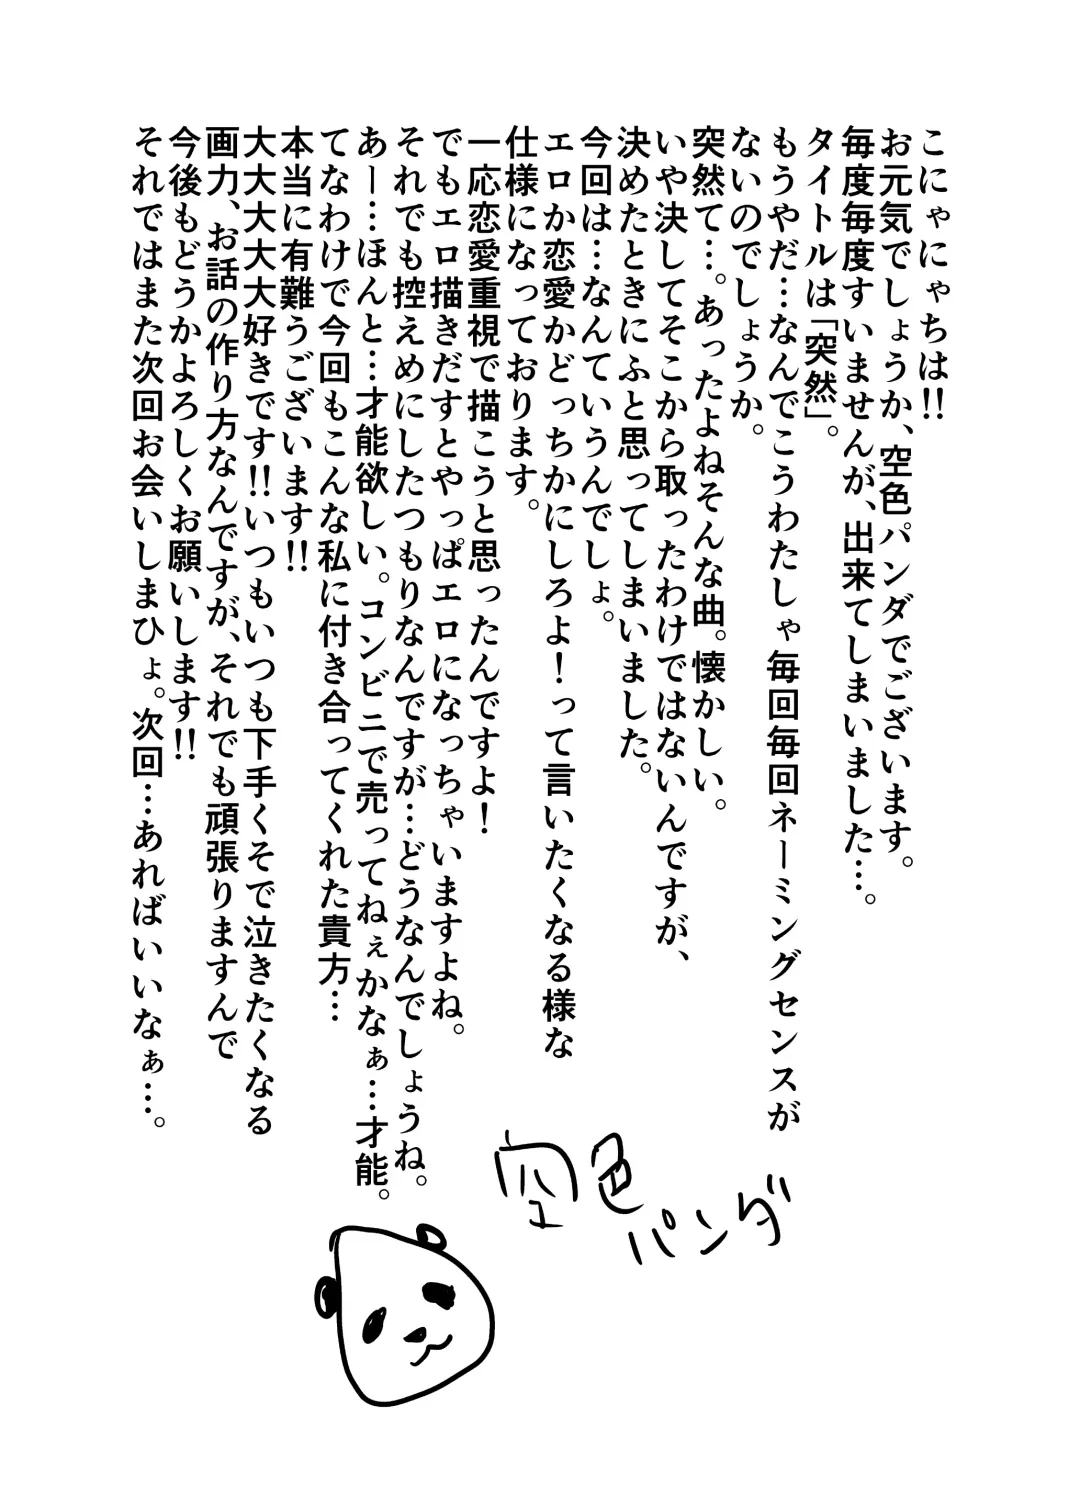 こにゃにゃちは!!
お元気でしょうか、空色パンダでございます。
毎度毎度すいませんが、出来てしまいました…。
タイトルは「突然」。
もうやだ…なんでこうわたしゃ毎回毎回ネーミングセンスが
ないのでしょうか。
突然て…。あったよねそんな曲。懐かしい。
いや決してそこから取ったわけではないんですが、
決めたときにふと思ってしまいました。
今回は…なんていうんでしょ。
エロか恋愛かどっちかにしろよ!って言いたくなる様な
仕様になっております。
一応恋愛重視で描こうと思ったんですよ!
でもエロ描きだすとやっぱエロになっちゃいますよね。
それでも控えめにしたつもりなんですが…どうなんでしょうね。
あー…ほんと…才能欲しい。コンビニで売ってねぇかなぁ…才能。
てなわけで今回もこんな私に付き合ってくれた貴方…
本当に有難うございます!!
大大大大大好きです!!いつもいつも下手くそで泣きたくなる
画力、お話の作り方なんですが、それでも頑張りますんで
今後もどうかよろしくお願いします!!
それではまた次回お会いしまひょ。次回…あればいいなぁ…。
空色
パンダ